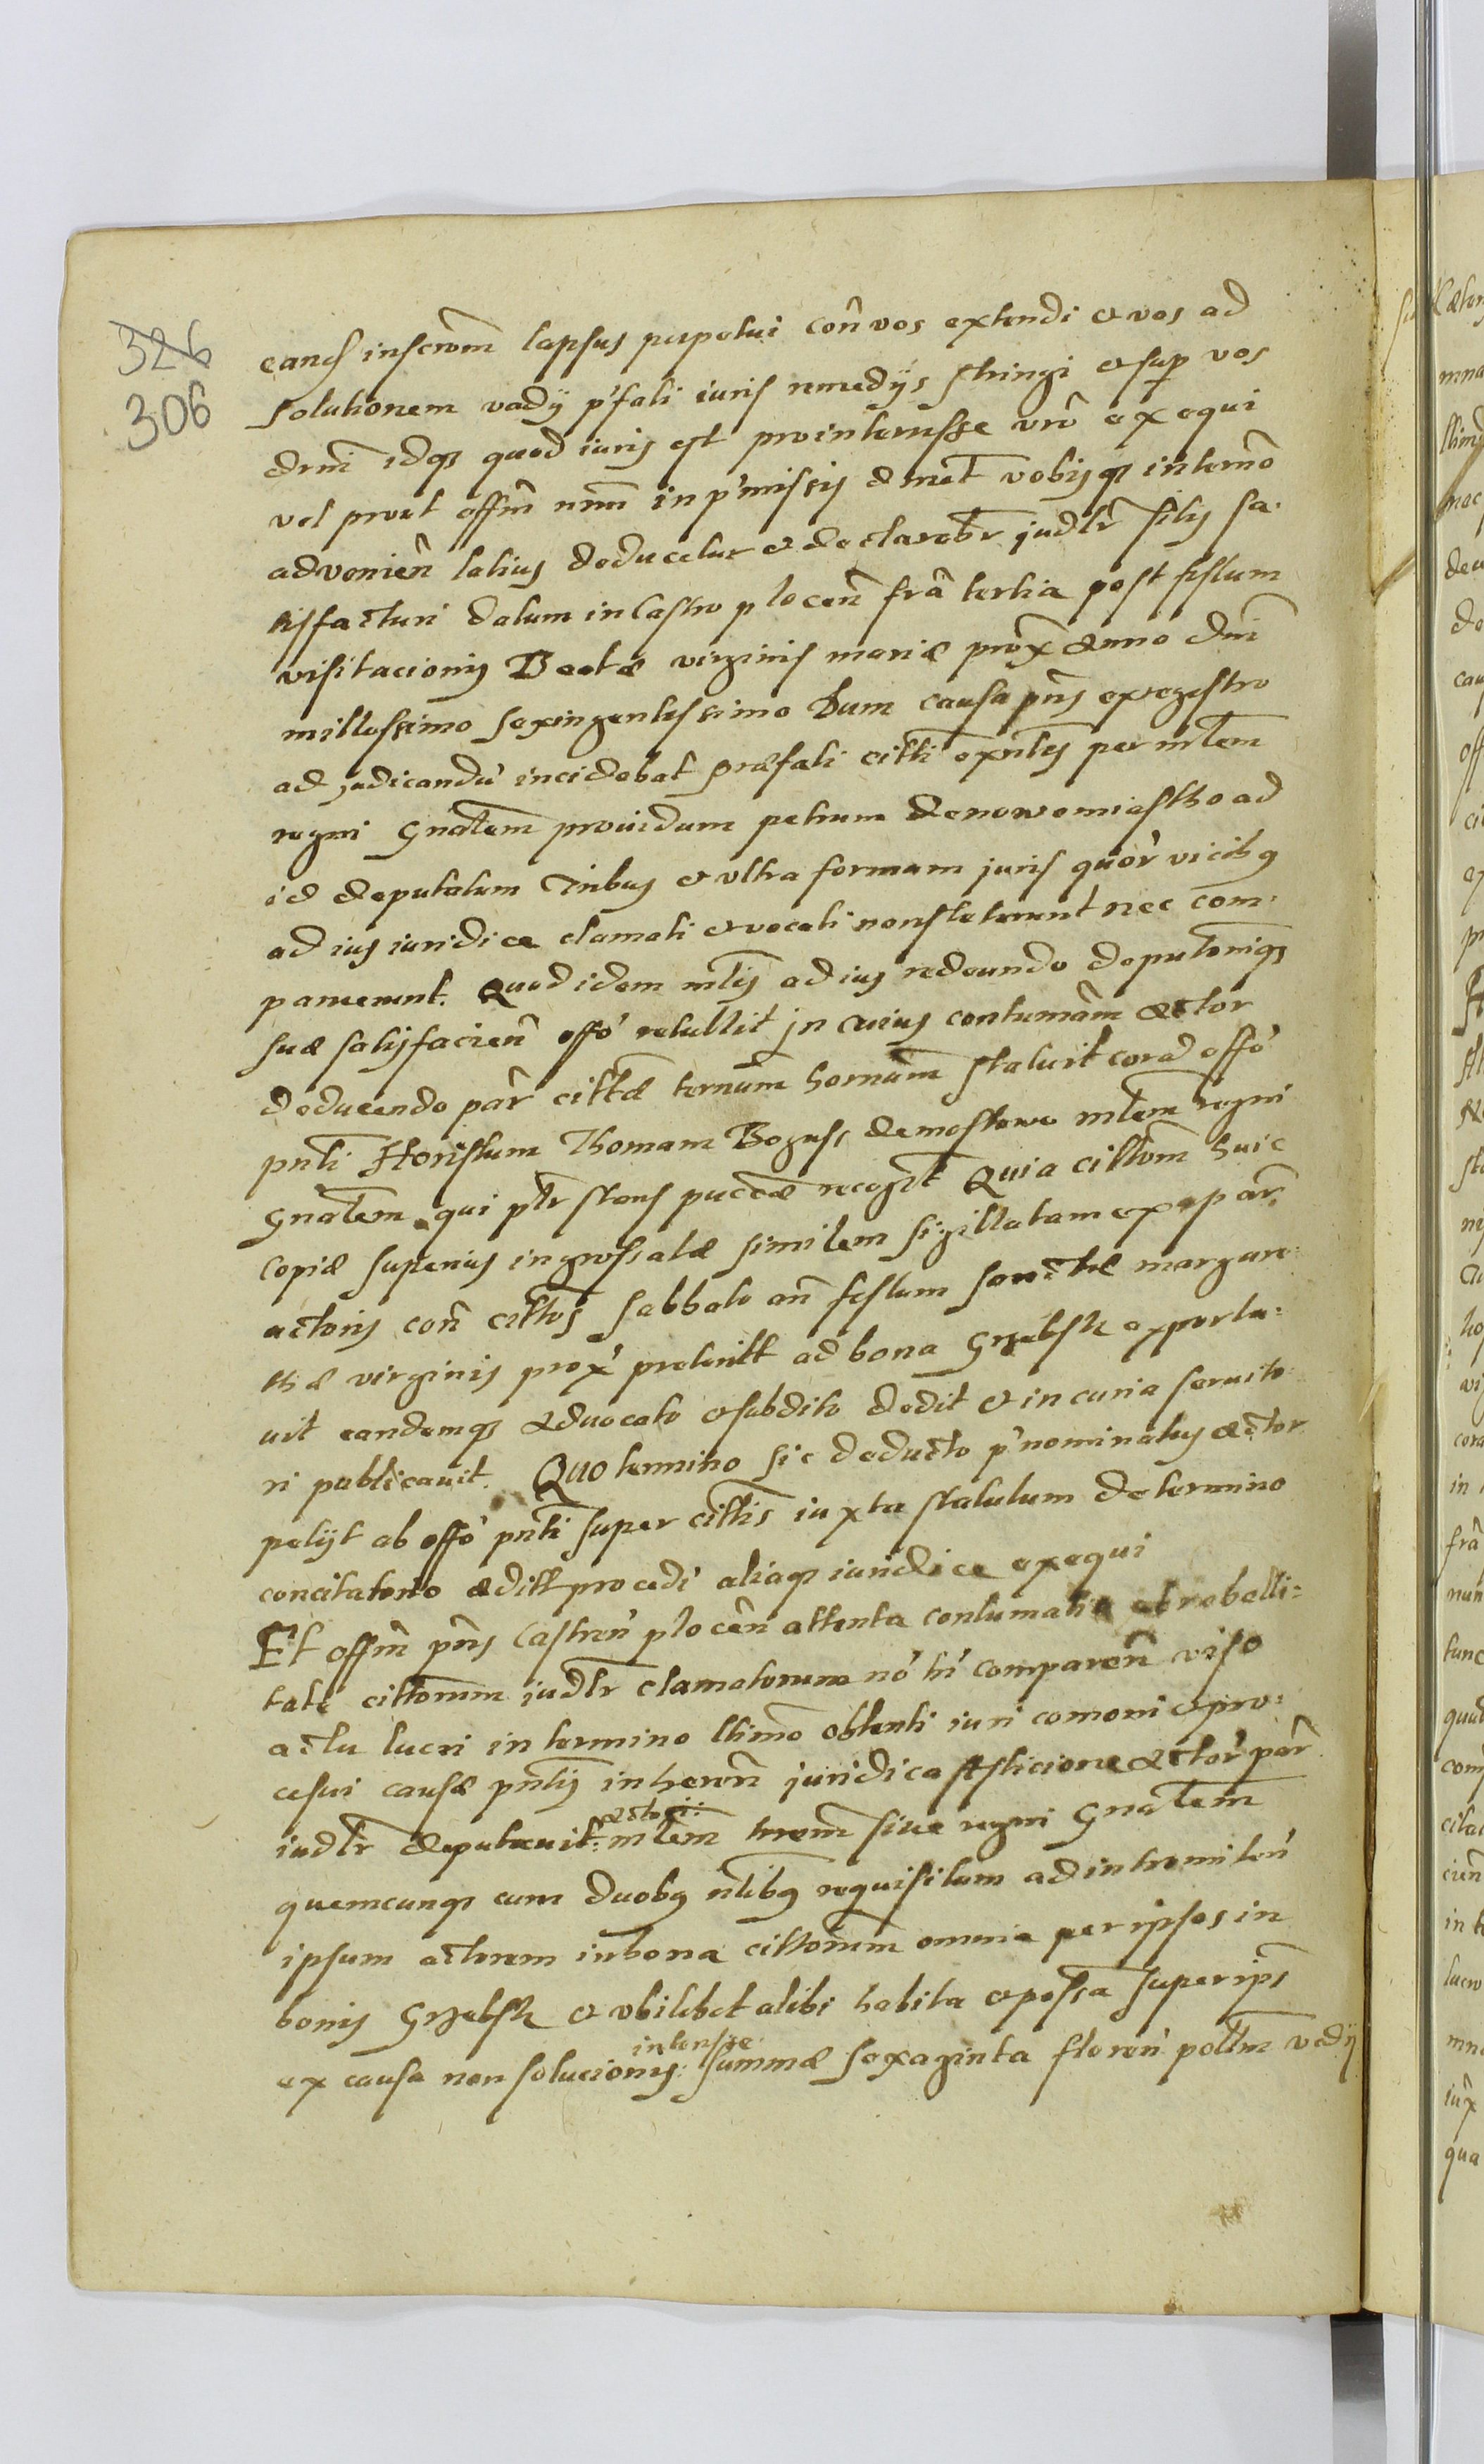 326
306
eand inscrōm lapsus perpetui con̄ vos extendi et vos ad
solutionem vadÿ p'fati iuris remedÿs stringi et sup vos
drmī idq quod iuris est prointeresse vrō exequi
vel prout offm̄ nrm̄ in p'missis d met vobisq in termō
advenien̄ latius deducetur et declarabr̄ judlr̄ sitis sa-
tisfacturi datum in Castro plocen̄ frā tertia post festum
visitacionis Beatæ virginis mariæ prox̄ Anno Dni
millessimo sexingentessimo Dum causa pn̄s ex regestro
ad judicandū incidebat præfati citti exn̄tes per mlem̄
regni Gnalem̄ providum petrum de nowemiastho ad
id deputatum Tribus et ultra formam juris quor̄ vicibq
ad ius iuridice clamati et vocati non steterunt nec com-
paruerunt. Quod idem mls̄ ad ius redeundo deputonīq
suæ satisfacien̄ offo' retullit jn cuius contumām Actor
deducendo par̄ cittæ ternūm hornūm statuit corā offo'
pnti Honestum Thomam Boguss de mostowo mlem̄ regni
Gnalem̄ qui ptr̄ stans pucdæ recogt̄ Quia cittōm huic
copiæ superius ingrossatæ similem sigillatam ex p ar̄
actoris con̄ cittos̄ sabbato an̄ festum sanctæ margare-
thæ virginis prox' preteritt ad bona Gnebsk exporta-
uit eandemq Advocato et subdito dedit et in curia servito-
ri publicavit. Quo termino sic deducto p'nominatus Actor
petijt ab offo' pnti super cittis iuxta statutum de termino
concitatorio æditt procedi aliaq iuridice exequi
Et offm̄ pn̄s Castren' plocen̄ attenta contumatia et rebelli-
tate cittorum̄ iudlr̄ clamatorum no' hi' comparen̄ viso
actu lucri in termino llimo obtenti iuri comoni et pro-
cesui causæ pn̄tis inheren̄ juridica Afflicione Actor' par̄
actori:
iudlr̄ deputavit: mlem̄ trem̄ siue regni Gnalem̄
quemcunq cum duobq nlibq requisitum ad intromitten̄
ipsum actorem in bona cittorum̄ omnia per ipsos in
bonis Gnebsk et ubilibet alibi habita et possa super ips̄
intensæ
ex causa non solucionis: summæ sexaginta floren' poltm̄ vadÿ